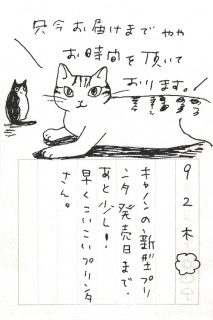 只今お届けまでやや
お時間を頂いて
おります。!
9
2
木
キャノンの新型プリ
ンタ発売日まで、
あと少し!
早くこいこいプリンタ
さん。